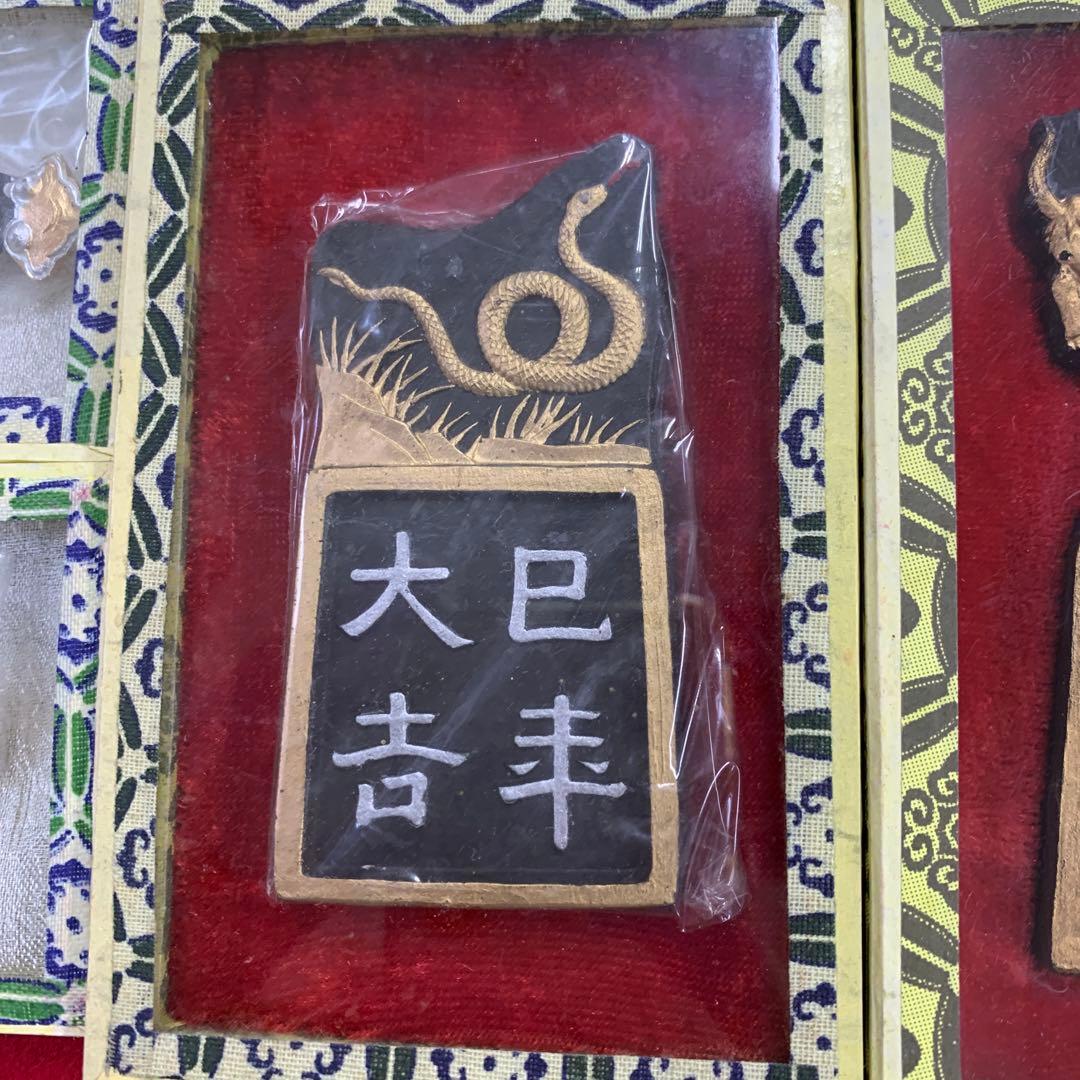 巳年
大吉